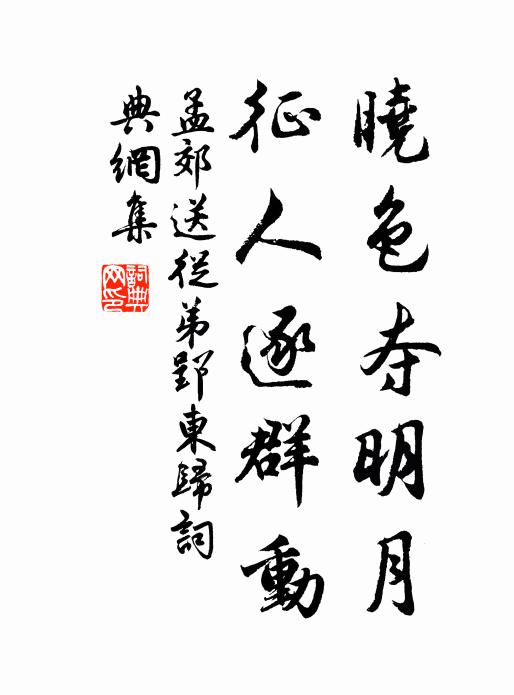 曉色夺明月
征人逐群動
孟郊送從弟郢東歸詞
典網集
詞典网印